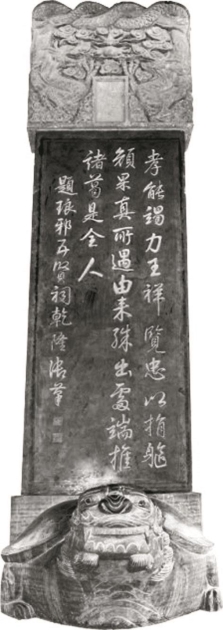 孝能竭力王祥覽忠以捐軀
顏杲真所遇由來殊出處端推
諸葛是全人
題琅邪五賢祠乾隆御筆